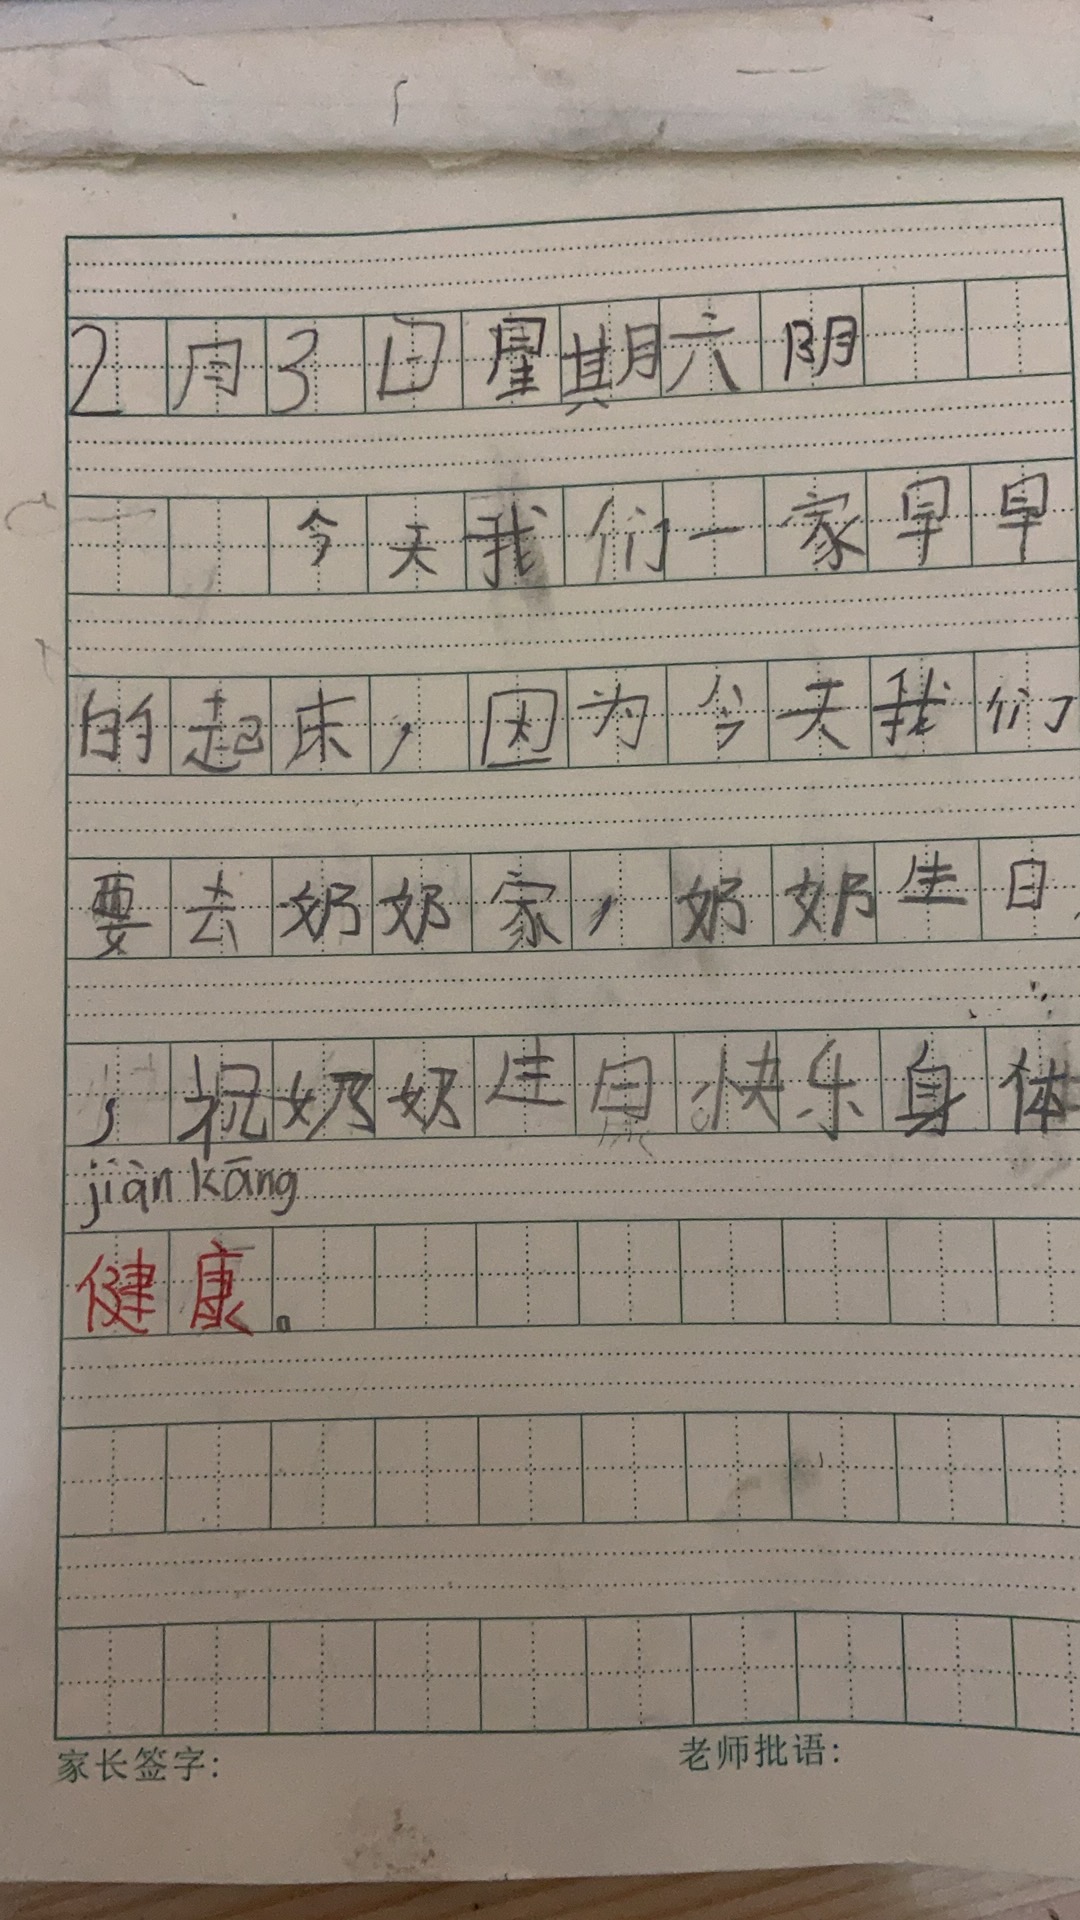 2月3日星期六 阴
今天我们一家早早
的起床，因为今天我们
要去奶奶家，奶奶生日
，祝奶奶生日快乐身体
jiàn kāng
健康。
家长签字：
老师批语：